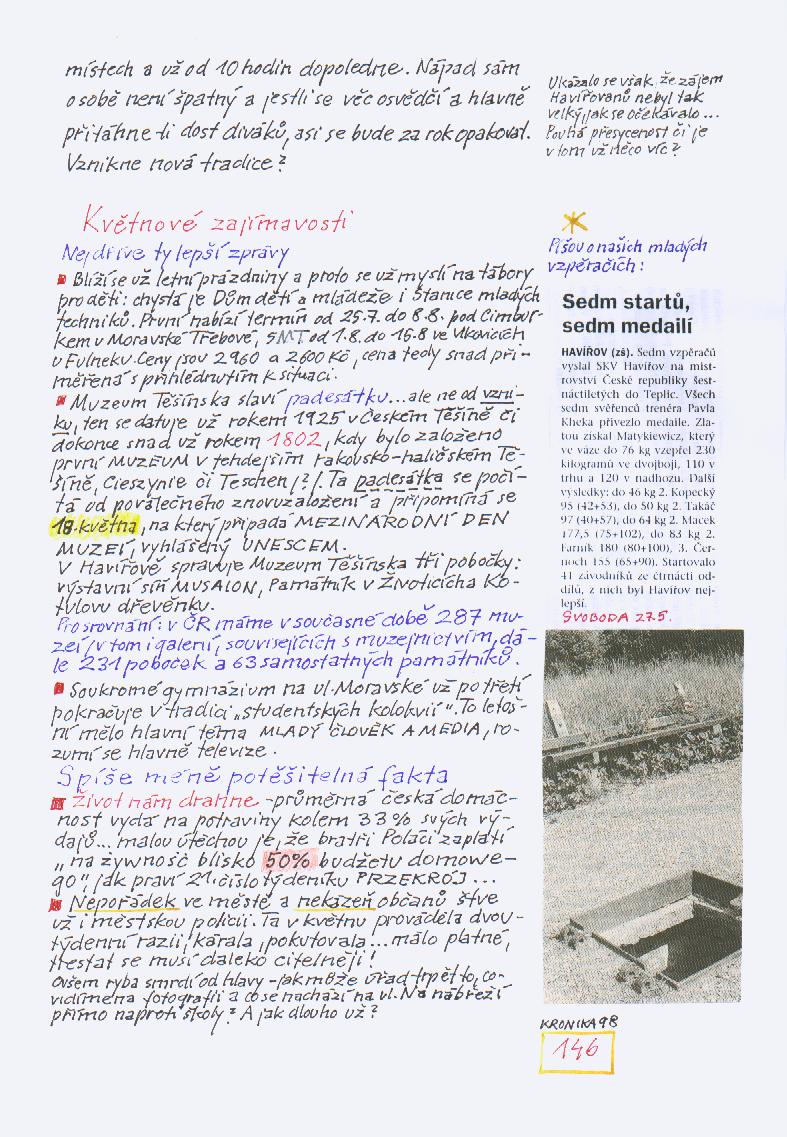 místech a už od 10 hodin dopoledne. Nápad sám
o sobě není špatný a jestli se věc osvědčí a hlavně
přitáhne-li dost diváků, asi se bude za rok opakovat.
Vznikne nová tradice?
Ukázalo se však, že zájem
Havířovanů nebyl tak
velký, jak se očekávalo...
Pouhá přesycenost či je
v tom už něco víc?
Květnové zajímavosti
Nejdříve ty lepší zprávy
Blíží se už letní prázdniny a proto se už myslí na tábory
pro děti: chystá je Dům dětí a mládeže i Stanice mladých
techniků. První nabízí termín od 25.7. do 8.8. pod Cimbur-
kem v Moravské Třebové, SMT od 1.8. do 15.8 ve Vlkovicích
u Fulneku. Ceny jsou 2960 a 2600 Kč, cena tedy snad při-
měřená s přihlédnutím k situaci.
Muzeum Těšínska slaví padesátku...ale ne od vzni-
ku, ten se datuje už rokem 1925 v Českém Těšíně či
dokonce snad už rokem 1802, kdy bylo založeno
první MUZEUM v tehdejším rakousko-haličském Tě-
šíně, Cieszynie či Teschen/?/. Ta padesátka se počí-
tá od poválečného znovuzaložení a připomíná se
18. května, na který připadá MEZINÁRODNÍ DEN
MUZEÍ, vyhlášený UNESCEM.
V Havířově spravuje Muzeum Těšínska tři pobočky:
výstavní síň MUSAION, Památník v Životicích a Ko-
tulovu dřevěnku.
Pro srovnání: v ČR máme v současné době 287 mu-
zeí/v tom i galerií, souvisejících s muzejnictvím, dá-
le 231 poboček a 63 samostatných památníků.
Soukromé gymnázium na ul. Moravské už po třetí
pokračuje v tradici „studentských kolokvií“. To letoš-
ní mělo hlavní téma MLADÝ ČLOVĚK A MEDIA, ro-
zumí se hlavně televize.
Spíše méně potěšitelná fakta
Život nám drahne - průměrná česká domác-
nost vydá na potraviny kolem 33% svých vý-
dajů... malou útěchou je, že bratři Poláci zaplatí
„na żywność blisko 50% budżetu domowe-
go“, jak praví 21. číslo týdeníku PRZEKRÓJ...
Nepořádek ve městě a nekázeň občanů štve
už i městskou policii. Ta v květnu prováděla dvou-
týdenní razii, kárala, pokutovala...málo platné,
trestat se musí daleko citelněji!
Ovšem ryba smrdí od hlavy - jak může úřad trpět to, co
vidíme na fotografii a co se nachází na ul. Na nábřeží
přímo naproti školy? A jak dlouho už?
Píšou o našich mladých
vzpěračích:
Sedm startů,
sedm medailí
HAVÍŘOV (zš). Sedm vzpěračů
vyslal SKV Havířov na mist-
rovství České republiky šest-
náctiletých do Teplic. Všech
sedm svěřenců trenéra Pavla
Kheka přivezlo medaile. Zla-
tou získal Matykiewicz, který
ve váze do 76 kg vzepřel 230
kilogramů ve dvojboji, 110 v
trhu a 120 v nadhozu. Další
výsledky: do 46 kg 2. Kopecký
95 (42+53), do 50 kg 2. Takáč
97 (40+57), do 64 kg 2. Macek
177,5 (75+102), do 83 kg 2.
Farník 180 (80+100), 3. Čer-
noch 155 (65+90). Startovalo
41 závodníků ze čtrnácti od-
dílů, z nich byl Havířov nej-
lepší.
SVOBODA 27.5.
KRONIKA 98
146